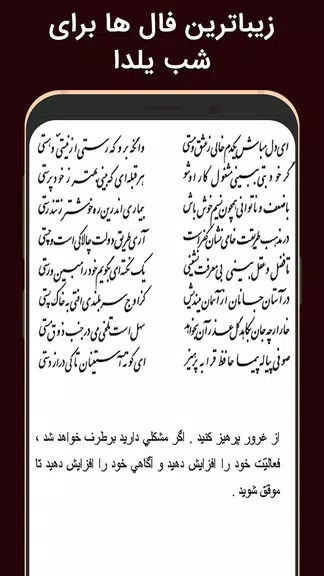 زیباترین فال ها برای
شب یلدا
ای دل مباش یکدم خالی ز عشق و مستی وانگه برو که رستی از نیستی و هستی
گر خود بتی ببینی مشغول کار او شو هر قبله‌ای که بینی بهتر ز خودپرستی
با ضعف و ناتوانی همچون نسیم خوش باش بیماری اندرین ره خوشتر ز تندرستی
در مذهب طریقت خامی نشان کفر است آری طریق دولت چالاکی است و چستی
تا فضل و عقل بینی بی معرفت نشینی یک نکته‌ات بگویم خود را مبین و رستی
در آستان جانان از آسمان میندیش کز اوج سربلندی افتی به خاک پستی
خار ارچه جان بکاهد گل عذر آن بخواهد سهل است تلخی می در جنب ذوق مستی
صوفی پیاله پیما حافظ قرابه پرهیز ای کوته آستینان تا کی درازدستی
از غرور پرهیز کنید . اگر مشکلي دارید برطرف خواهد شد ،
فعالیّت خود را افزایش دهید و آگاهي خود را افزایش دهید تا
موفق شوید .